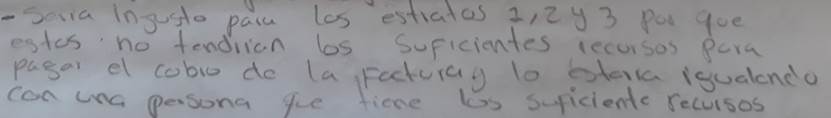 - Seria Ingusto para los estratos 1, 2 y 3 por que
estos no tendrian los suficientes recursos para
pagar el cobro de la factura y lo staria igualando
con una persona que tiene los suficiente recursos